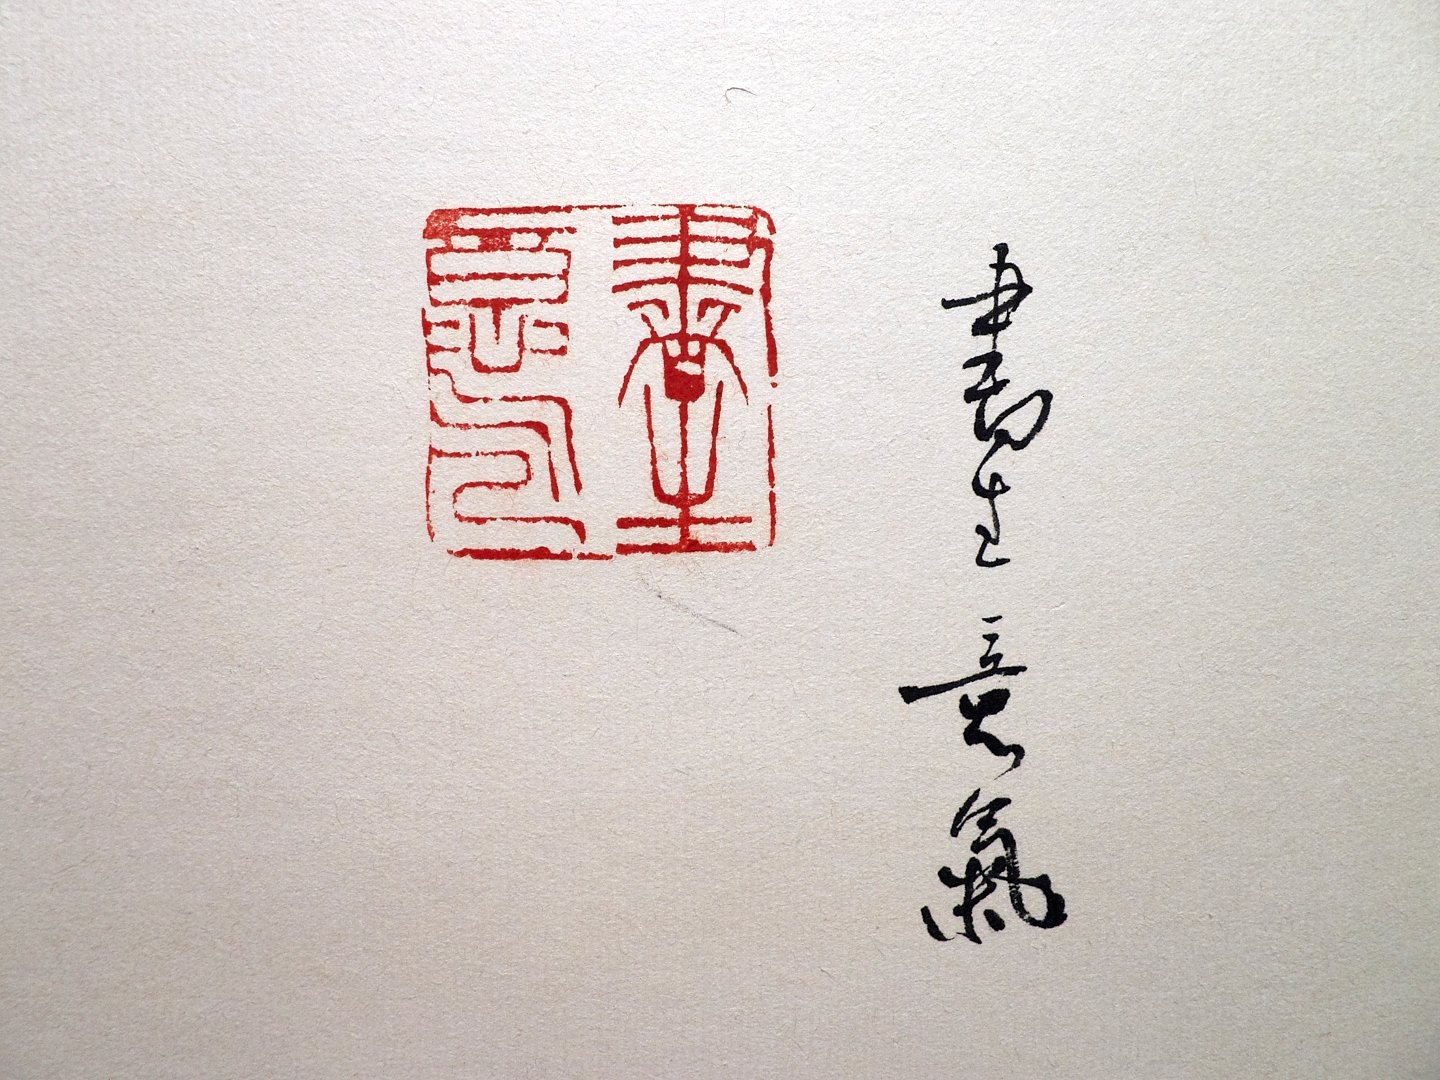 書生意氣
書生意气